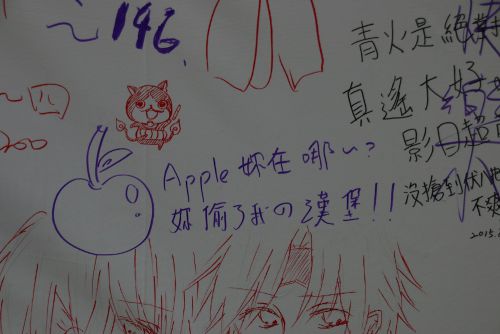 ～146.
青火是絕對
～四
真遙大好
200
影日超
Apple 妳在哪～?
妳偷了我の漢堡!!
沒搶到伏
不爽
2015.